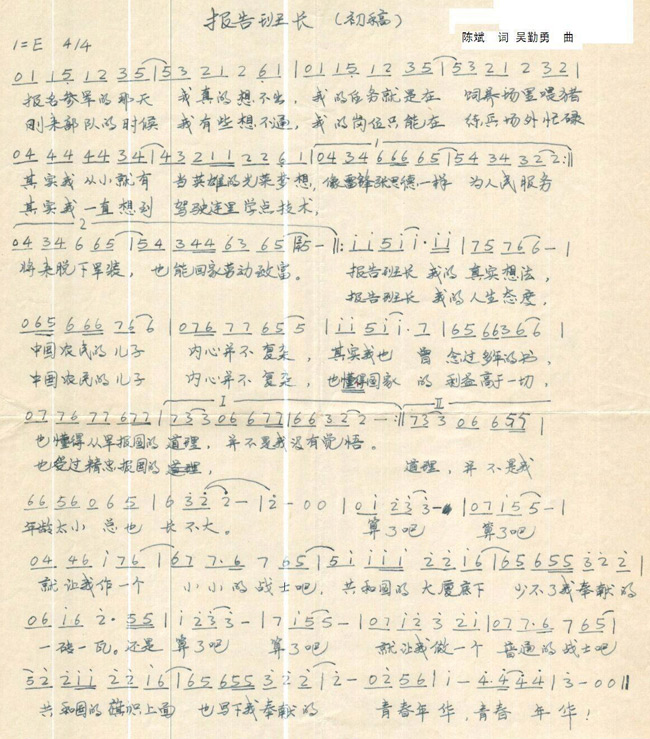 报告班长 (初稿)
陈斌 词 吴勤勇 曲
1=E 4/4
01 15 12 35 | 53 21 2 61 | 01 15 12 35 | 53 21 2 32 |
报名参军的那天 我真的想不出, 我的任务就是在 饲养场里喂猪
刚来部队的时候 我有些想不通, 我的岗位只能在 练兵场外忙碌
04 44 44 34 | 43 211 22 61 | 04 34 666 65 | 54 34 322 :||
其实我从小就有 当英雄的光荣梦想, 像雷锋张思德一样 为人民服务
其实我一直想到 驾驶连里学点技术,
2
04 34 6 65 | 54 344 63 65 | 5 - ||: i i 5 i i· i i | 75 766 - |
将来脱下军装, 也能回家劳动致富。 报告班长 我的真实想法,
报告班长 我的人生态度,
065 666 766 | 076 77 655 | i i 5 i i· 7 | 65 66366 |
中国农民的儿子 内心并不复杂, 其实我也 曾念过多年的书,
中国农民的儿子 内心并不复杂, 也懂得国家 的利益高于一切,
I II
07 76 77 677 | 733 06 677 | 66 322 - :|| 733 06 655 |
也懂得从军报国的道理, 并不是我没有觉悟。
也受过精忠报国的道理, 道理, 并不是我
66 56 065 | 6 32 2 - | 2 - 00 | 0 i 2 3 3 - | 07 i 55 - |
年龄太小 总也 长不大。 算了吧 算了吧
04 46 i 76 | 67 7·6 7 65 | 5 i i i i 22 i6 | 65 655 322 |
就让我作一个 小小的战士吧, 共和国的大厦底下 少不了我奉献的
06 i6 2· 55 | i 2 3 3 - | 7 i 55 - | 07 i2 3 2i | 07 7·6 765 |
一砖一瓦。还是 算了吧 算了吧 就让我做一个 普通的战士吧
52 2ii 22 i6 | 65 655 322 | 2 - 0256 | i - 4·444 | 3 - 00 ||
共和国的旗帜上面 也写下我奉献的 青春年华, 青春 年华!